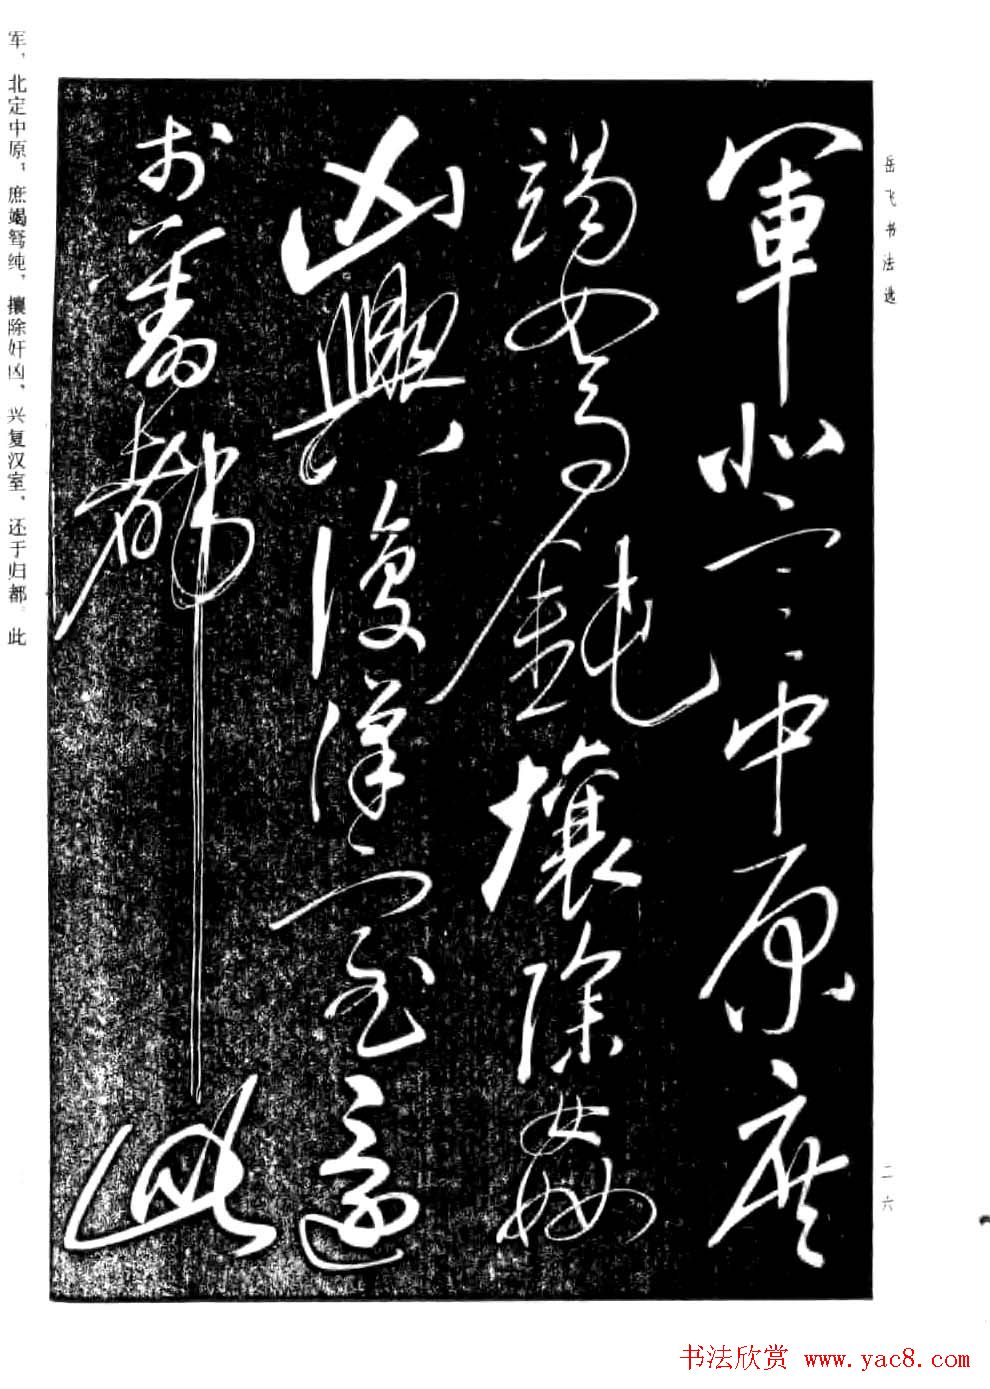 岳飞书法选
軍北定中原庶
竭駑鈍攘除姦
凶興復漢室還
於舊都此
军，北定中原，庶竭驽纯，攘除奸凶、兴复汉室，还于归都。此
二六
书法欣赏 www.yac8.com